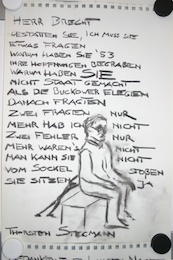 HERR BRECHT
GESTATTEN SIE, ICH MUSS SIE
ETWAS FRAGEN
WARUM HABEN SIE '53
IHRE HOFFNUNGEN BEGRABEN
WARUM HABEN SIE
NICHT STAAT GEMACHT
ALS DIE BUCKOWER ELEGIEN
DANACH FRAGEN
ZWEI FRAGEN NUR
MEHR HAB ICH NICHT
ZWEI FEHLER NUR
MEHR WAREN'S NICHT
MAN KANN SIE NICHT
VOM SOCKEL STOßEN
SIE SITZEN JA
THORSTEN STEGMANN